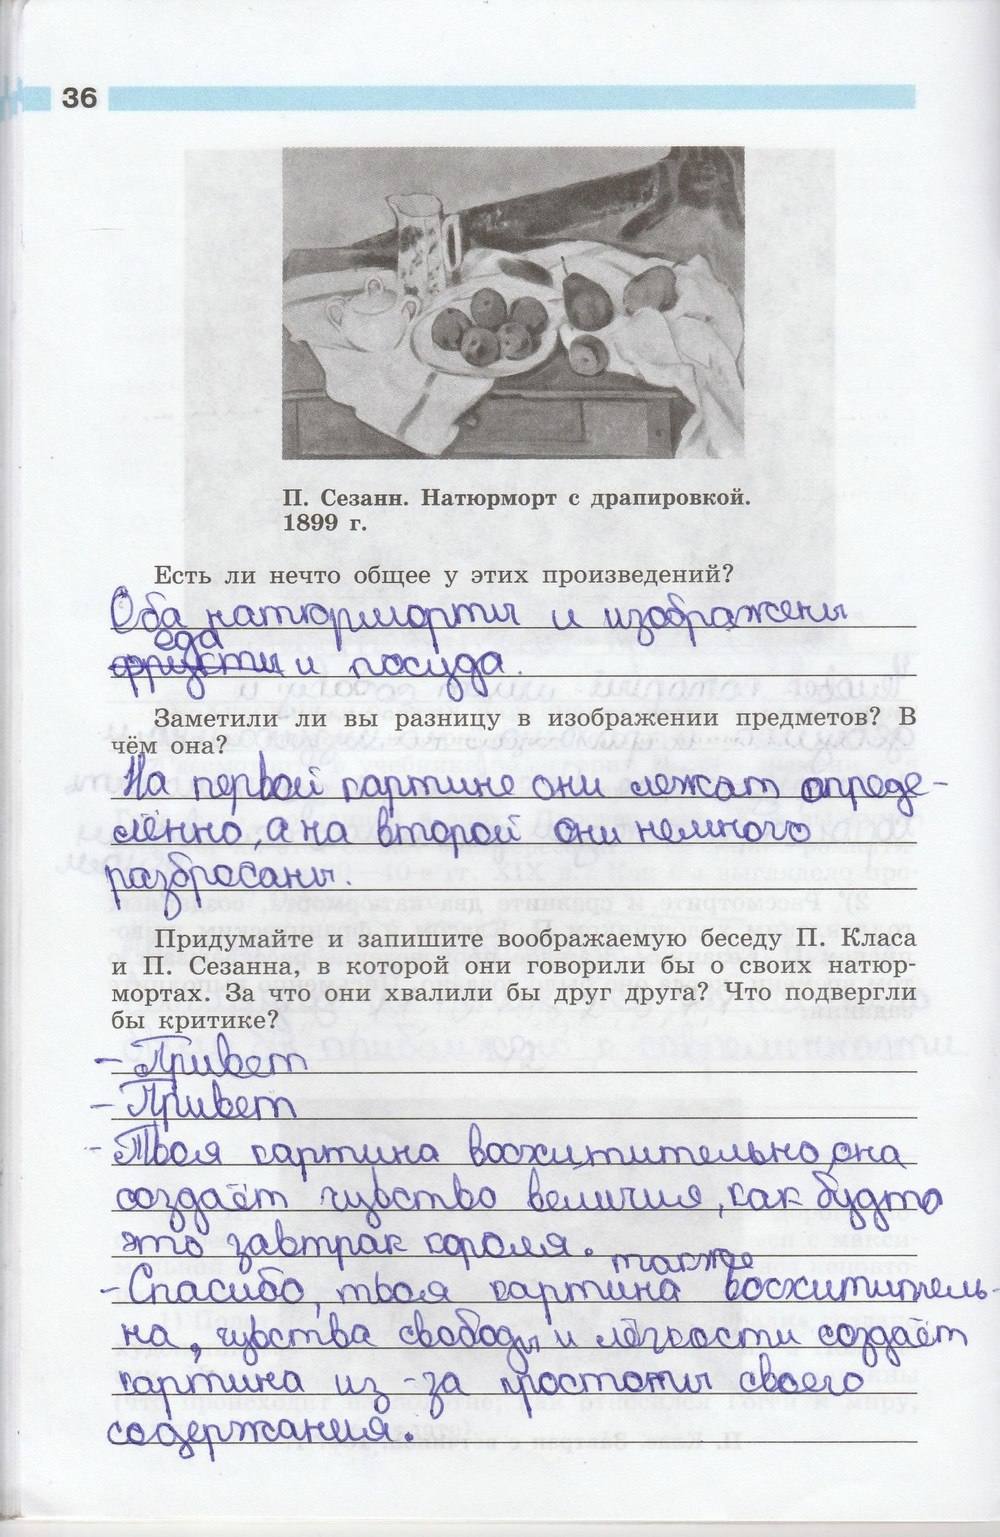 36
П. Сезанн. Натюрморт с драпировкой.
1899 г.
Есть ли нечто общее у этих произведений?
Оба натюрморты и изображены
еда
фрукты и посуда.
Заметили ли вы разницу в изображении предметов? В
чём она?
На первой картине они лежат опреде-
лённо, а на второй они немного
разбросаны.
Придумайте и запишите воображаемую беседу П. Класа
и П. Сезанна, в которой они говорили бы о своих натюр-
мортах. За что они хвалили бы друг друга? Что подвергли
бы критике?
- Привет
- Привет
- Твоя картина восхитительно, она
создаёт чувство величия, как будто
это завтрак короля.
также
- Спасибо, твоя картина восхититель-
на, чувства свободы и лёгкости создаёт
картина из-за простоты своего
содержания.